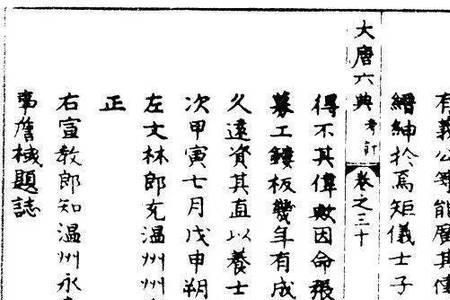 有義公等能廣其傳
縉紳於焉矩儀士子
大唐六典 考訂 卷之三十
得不其偉歟因命張
募工鏤板幾年有成
久遠資其直以養士
次甲寅七月戊申朔
左文林郎充温州州
正
右宣教郎知温州永
詹棫題誌